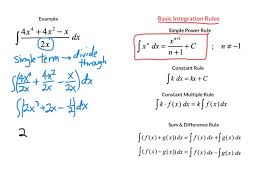 Example
∫ (4x⁴ + 4x² − x)/(2x) dx
single-term → divide
through
∫(4x⁴/2x + 4x²/2x − x/2x) dx
∫(2x³ + 2x − 1/2) dx
2
Basic Integration Rules
Simple Power Rule
∫ xⁿ dx = xⁿ⁺¹/(n+1) + C ; n ≠ −1
Constant Rule
∫ k dx = kx + C
Constant Multiple Rule
∫ k · f(x) dx = k ∫ f(x) dx
Sum & Difference Rule
∫(f(x) + g(x)) dx = ∫ f(x) dx + ∫ g(x) dx
∫(f(x) − g(x)) dx = ∫ f(x) dx − ∫ g(x) dx